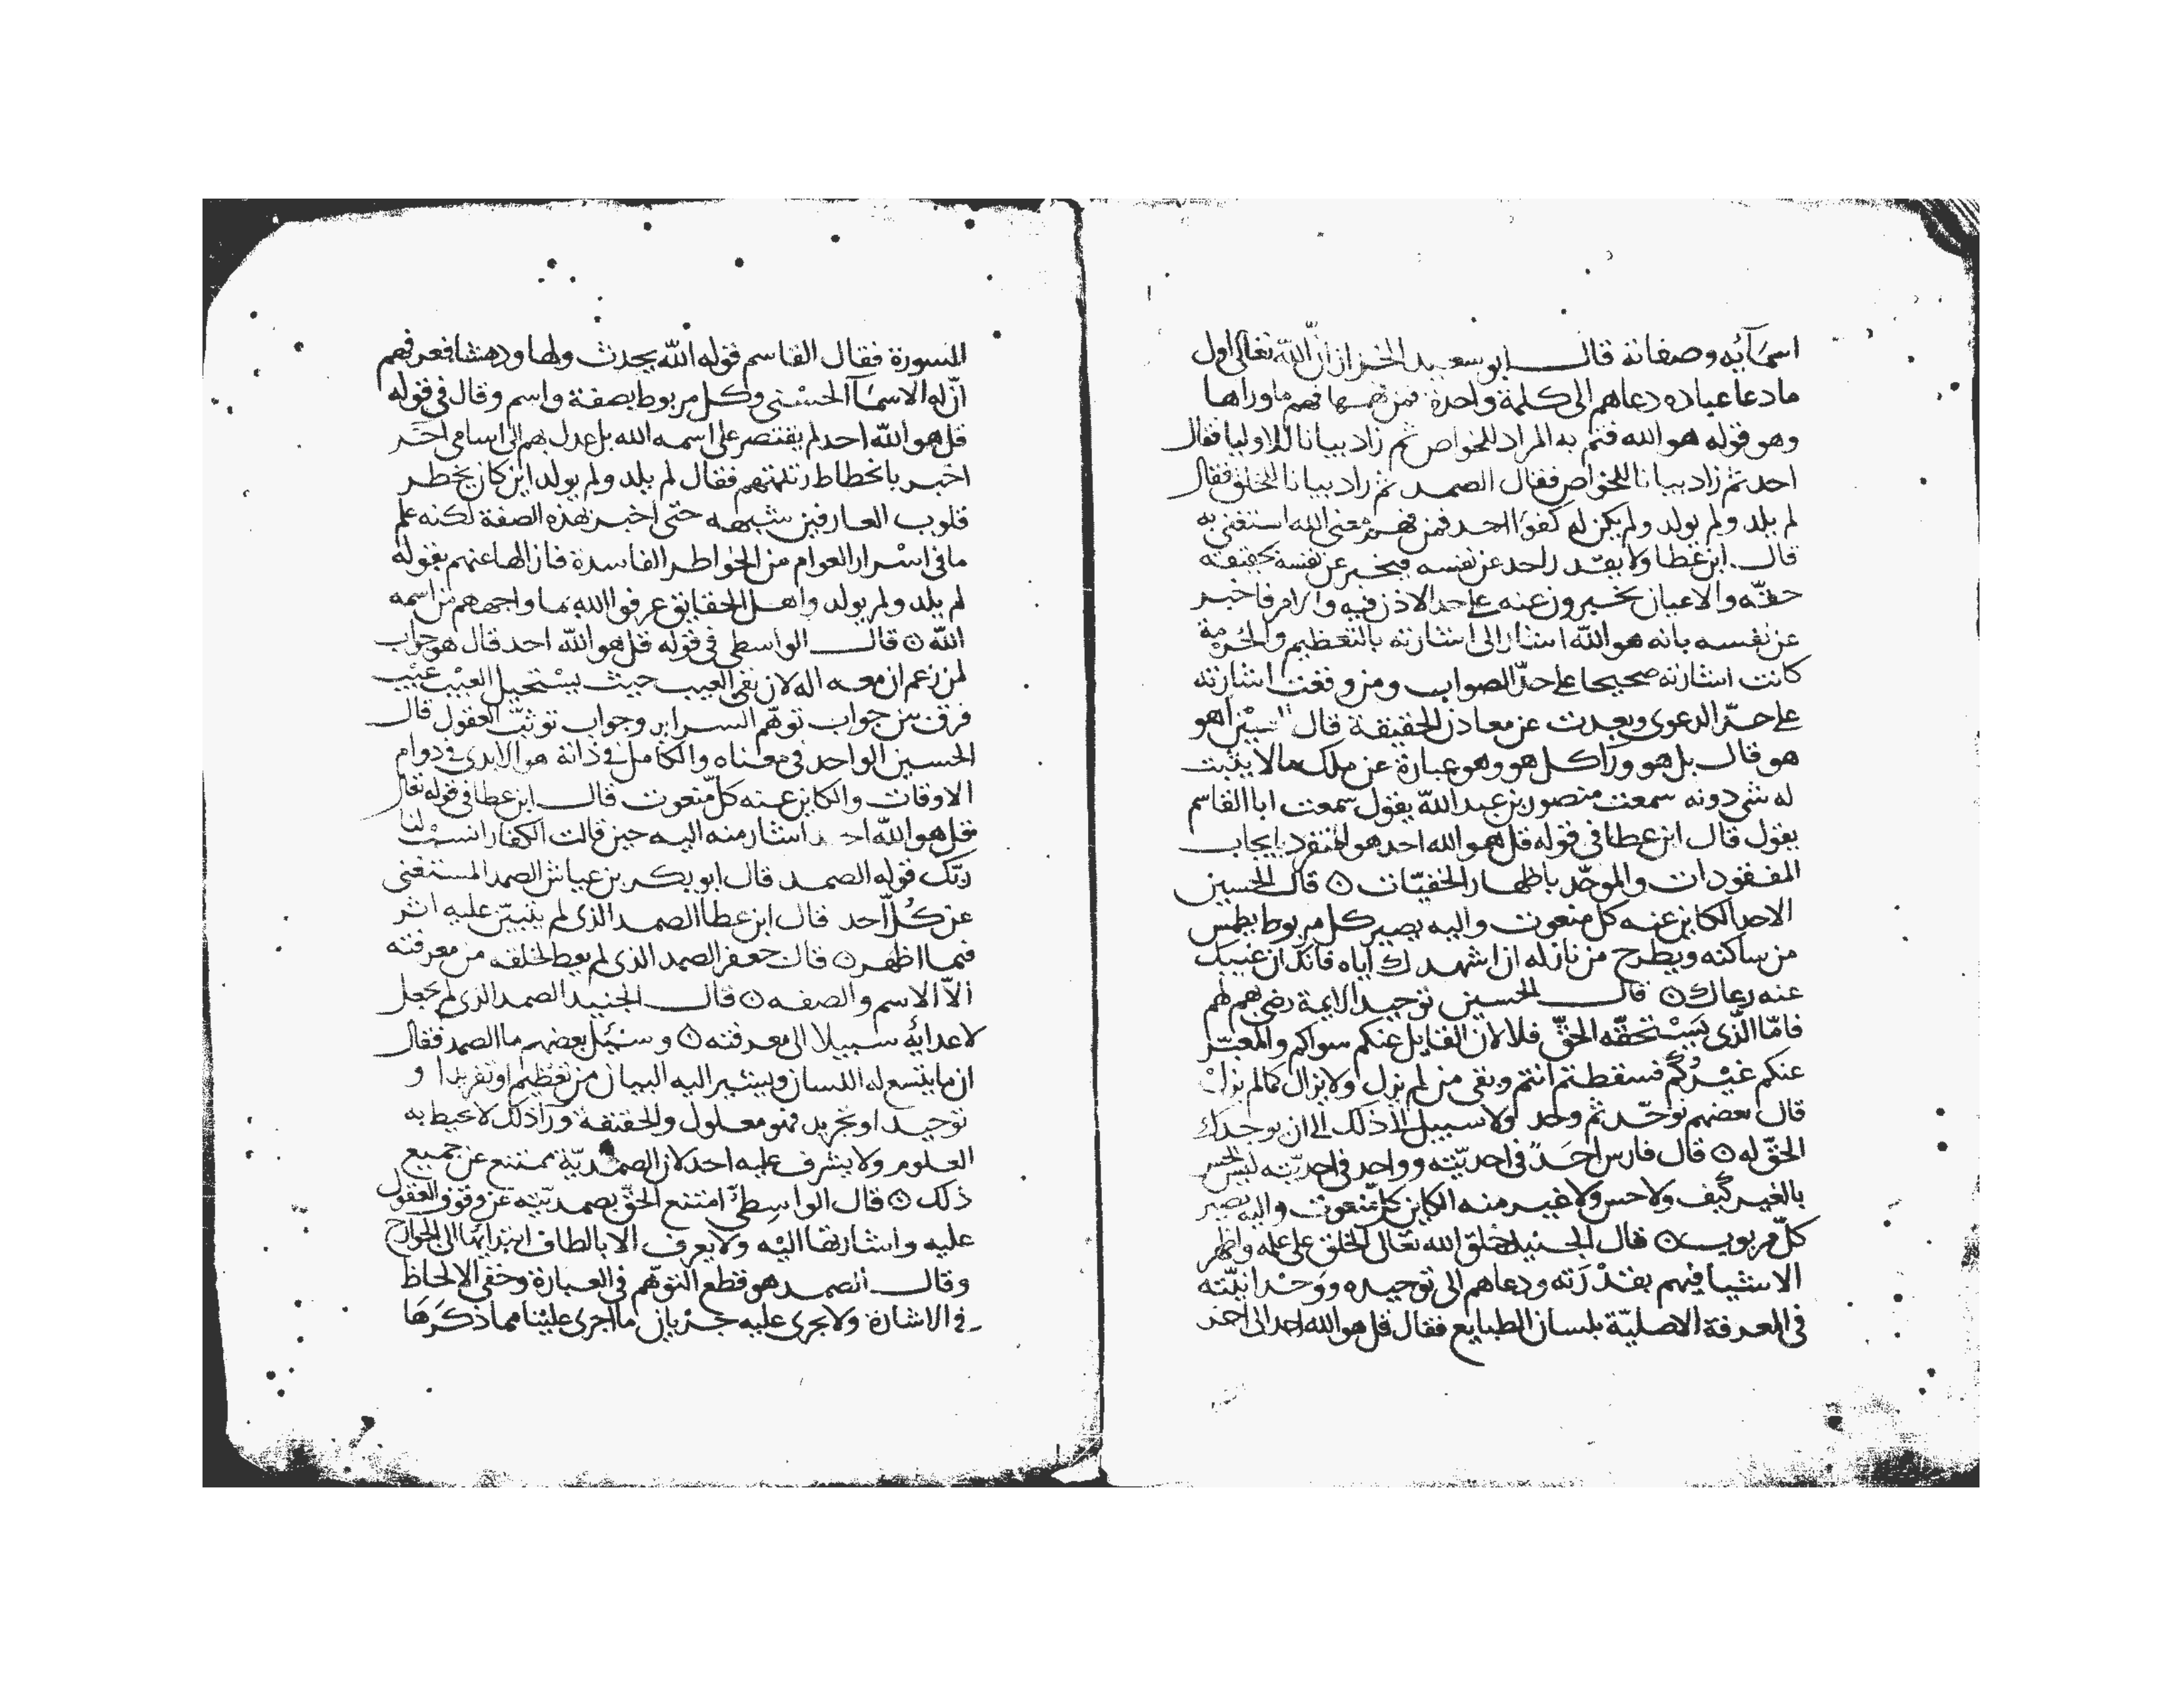 اسمآيه وصفاته قال ابو سعيد الخراز ان الله تعالى اول
ما دعا عباده دعاهم الى كلمة واحدة فمن فهمها فهم ما وراها
وهو قوله هو الله فتم به المراد للخواص ثم زاد بيانا للاوليا فقال
احد ثم زاد بيانا للخواص فقال الصمد ثم زاد بيانا للخلق فقال
لم يلد ولم يولد ولم يكن له كفوا احد فمن فهم معنى الله استغنى به
قال ابن عطا ولا احد عن نفسه فيخبر عن نفسه بحقيقة
حقه والاعيان يخبرون عنه على حد الاذن فيه والامر فاخبر
عن نفسه بانه هو الله اشار الى اشارته بالتعظيم والحرمة
كانت اشارته صحيحا على حدّ الصواب ومن وقعت اشارته
على حدّ الدعوى وبعدت عن معادن الحقيقة قال اهو
هو قال بل هو ورآ كل هو وهو عبارة عن ملك ما لا يثبت
له شى دونه سمعت منصور بن عبد الله يقول سمعت ابا القاسم
يقول قال ابن عطا فى قوله قل هو الله احد هو المنفرد بايجاب
المفقودات والموحّد باظهار الخفيّات ۞ قال الحسين
الاحد الكاين عنه كل منعوت واليه يصير كل مربوط يطمس
من ساكنه ويطرح من نازله ان اشهدك اياه فانك ان غيبك
عنه رعاك ۞ قال الحسين توحيد الايمة رضى بهم لهم
فامّا الذّى يَسْتحقّه الحقّ فلا لان القايل عنكم سواكم والمعبّر
عنكم غيْرُكُم فسقطتم انتم وبقى من لم يزل ولا يزال كما لم يزل
قال بعضهم توحّد ثم وحد ولا سبيل الا ذلك الى ان يوحدك
الحقّ له ۞ قال فارس احَدٌ فى احديّته وواحد فى احديّته ليس
بالغير كيف ولا حس ولا غير منه الكاين كلّ منعوت واليه يصير
كلّ مربوب ۞ قال الجنيد خلق الله تعالى الخلق على علمه واظهر
الاشيا فيهم بقدْرَته ودعاهم الى توحيده ووحْدانيّته
فى المعرفة الاصليّة بلسان الطبايع فقال قل هو الله احد الى اخر
السورة فقال القاسم قوله الله يحدث ولها ودهشا فعرفهم
انّ له الاسمآ الحسْنى وكل مربوط بصفة واسم وقال فى قوله
قل هو الله احد لم يقتصر على اسمه الله بل عدل بهم الى اسامى اخر
اخبر بانحطاط رتبتهم فقال لم يلد ولم يولد اين كان يخطر
قلوب العارفين شبهه حتى اخبر بهذه الصفة لكنه علم
ما فى اسْرار العوام من الخواطر الفاسدة فازالها عنهم بقوله
لم يلد ولم يولد واهل الحقايق عرفوا الله بما واجههم من اسمه
الله ۞ قال الواسطى فى قوله قل هو الله احد قال هو جواب
لمن زعم ان معه اله لان نفى العيب حيث يسْتحيل العيْب عيْب
فرق بين جواب توهّم السراير وجواب توثبّ العقول قال
الحسين الواحد فى معناه والكامل فى ذاته هو الابدى فى دوام
الاوقات والكاين عنه كلّ منعوت قال ابن عطا فى قوله تعالى
قل هو الله احد اشار منه اليه حين قالت الكفار انسب لنا
ربّك قوله الصمد قال ابو بكر بن عياش الصمد المستغنى
عن كُلّ احد قال ابن عطا الصمد الذى لم يتبيّن عليه اثر
فيما اظهر ۞ قال جعفر الصمد الذى لم يعط لخلقه من معرفته
الّا الاسم والصفه ۞ قال الجنيد الصمد الذى لم يجعل
لاعدايه سبيلا الى معرفته ۞ وسئل بعضهم ما الصمد فقال
ان ما يتسع له اللسان ويشير اليه البيان من تعظيم او تفريد او
توحيد او تجريد فهو معلول والحقيقة ورآ ذلك لا يحيط به
العلوم ولا يشرف عليه احد لان الصمديّة ممتنع عن جميع
ذلك ۞ قال الواسِطىّ امتنع الحقّ بصمديّته عن وقوف العقول
عليه واشارتها اليْه ولا يعرف الا بالطاف ابتدايها الى الجوارح
وقال الصمد هو قطع التوهّم فى العبارة وخفى الالحاظ
فى الاشارة ولا يجرى عليه جريان ما اجرى عليْنا مما ذكرها